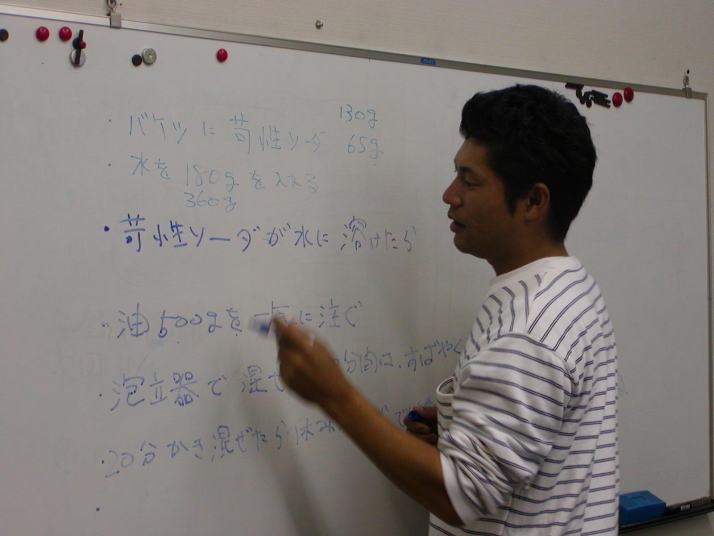 ・バケツに苛性ソーダ 130g
65g
・水を180gを入れる
360g
・苛性ソーダが水に溶けたら
・油500gを に注ぐ
・泡立器で混ぜ 分間は、すばやく
・20分かき混ぜたら休み